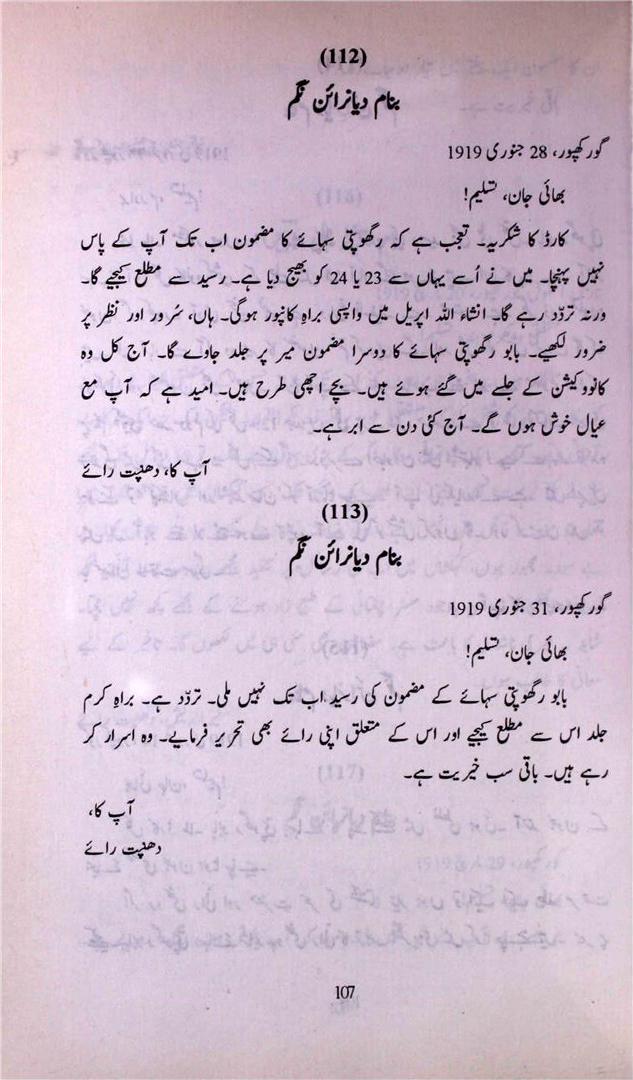 (112)
بنام دیانرائن نگم
گورکھپور، 28 جنوری 1919
بھائی جان، تسلیم!
کارڈ کا شکریہ۔ تعجب ہے کہ رگھوپتی سہائے کا مضمون اب تک آپ کے پاس
نہیں پہنچا۔ میں نے اُسے یہاں سے 23 یا 24 کو بھیج دیا ہے۔ رسید سے مطلع کیجیے گا۔
ورنہ تردّد رہے گا۔ انشاء اللہ اپریل میں واپسی براہ کانپور ہوگی۔ ہاں، سُرور اور نظر پر
ضرور لکھیے۔ بابو رگھوپتی سہائے کا دوسرا مضمون میر پر جلد جاوے گا۔ آج کل وہ
کانووکیشن کے جلسے میں گئے ہوئے ہیں۔ بچے اچھی طرح ہیں۔ امید ہے کہ آپ مع
عیال خوش ہوں گے۔ آج کئی دن سے ابر ہے۔
آپ کا، دھنپت رائے
(113)
بنام دیانرائن نگم
گورکھپور، 31 جنوری 1919
بھائی جان، تسلیم!
بابو رگھوپتی سہائے کے مضمون کی رسید اب تک نہیں ملی۔ تردّد ہے۔ براہِ کرم
جلد اس سے مطلع کیجیے اور اس کے متعلق اپنی رائے بھی تحریر فرمایے۔ وہ اسرار کر
رہے ہیں۔ باقی سب خیریت ہے۔
آپ کا،
دھنپت رائے
107